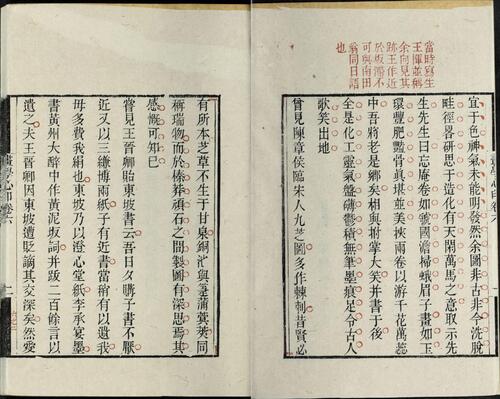 當時寫生
王惲並稱
余向見其
跡王作近
於板滯不
可與南田
翁同日語
也
宜于色神氣未能明發然余圖非古非今洗脫
畦徑畧研思于造化有天閑萬馬之意取示先
生先生曰忘庵卷如虢國澹掃蛾眉子畫如玉
環豐肥豔骨真堪並美挾兩卷以游千花萬蕊
中吾將老是鄉矣相與拊掌大笑并書于後
全是化工靈氣盤礴鬱積無筆墨痕足令古人
歌笑出地
曾見陳章侯臨宋人九芝圖多作榦刺昔賢必
有所本芝草不生于甘泉銅池與萐莆蓂莢同
稱瑞物而於榛莽頑石之間製圖有深思焉其
感慨可知已
嘗見王晉卿貽東坡書云吾日夕購子書不厭
近又以三縑博兩紙子有近書當稍有以遺我
毋多費我絹也東坡乃以澄心堂紙李承宴墨
書黃州大醉中作黃泥坂詞并跋二百餘言以
遺之夫王晉卿因東坡遭貶謫其交深矣然愛
畫學心印卷六
二